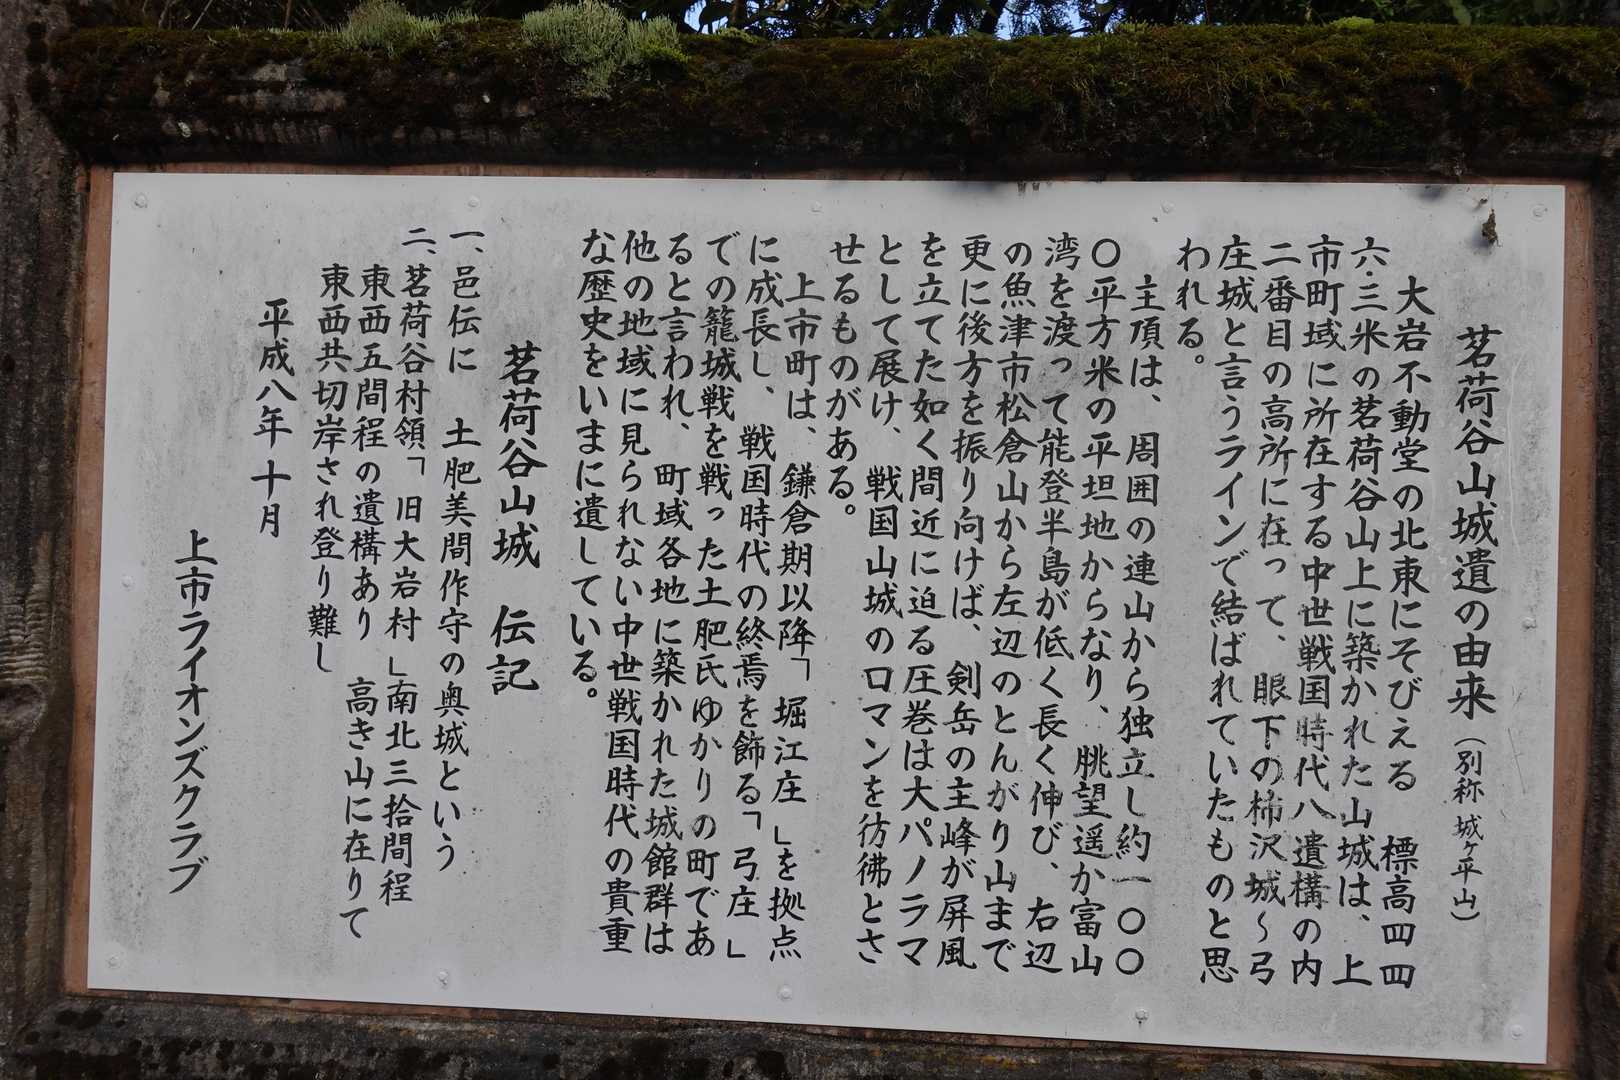 茗荷谷山城遺の由来（別称 城ヶ平山）
大岩不動堂の北東にそびえる 標高四四
六・三米の茗荷谷山上に築かれた山城は、上
市町域に所在する中世戦国時代八遺構の内
二番目の高所に在って、眼下の柿沢城～弓
庄城と言うラインで結ばれていたものと思
われる。
主頂は、周囲の連山から独立し約一〇〇
〇平方米の平坦地からなり、眺望遥か富山
湾を渡って能登半島が低く長く伸び、右辺
の魚津市松倉山から左辺のとんがり山まで
更に後方を振り向けば、剣岳の主峰が屏風
を立てた如く間近に迫る圧巻は大パノラマ
として展け、戦国山城のロマンを彷彿とさ
せるものがある。
上市町は、鎌倉期以降「堀江庄」を拠点
に成長し、戦国時代の終焉を飾る「弓庄」
での籠城戦を戦った土肥氏ゆかりの町であ
ると言われ、町域各地に築かれた城館群は
他の地域に見られない中世戦国時代の貴重
な歴史をいまに遺している。
茗荷谷山城 伝記
一、邑伝に 土肥美間作守の奥城という
二、茗荷谷村領「旧大岩村」南北三拾間程
東西五間程の遺構あり 高き山に在りて
東西共切岸され登り難し
平成八年十月
上市ライオンズクラブ